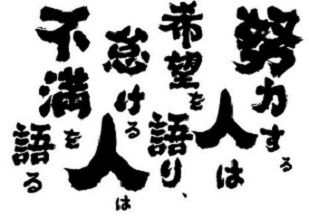 努力する
人は
希望を
語り、
怠ける
人は
不満を
語る